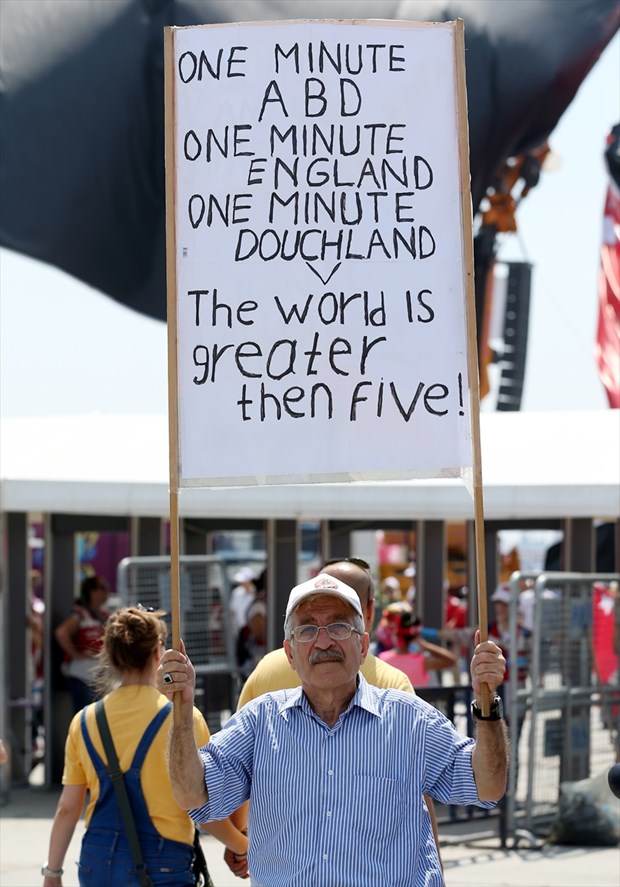 ONE MINUTE
ABD
ONE MINUTE
ENGLAND
ONE MINUTE
DOUCHLAND
The world is
greater
then five!